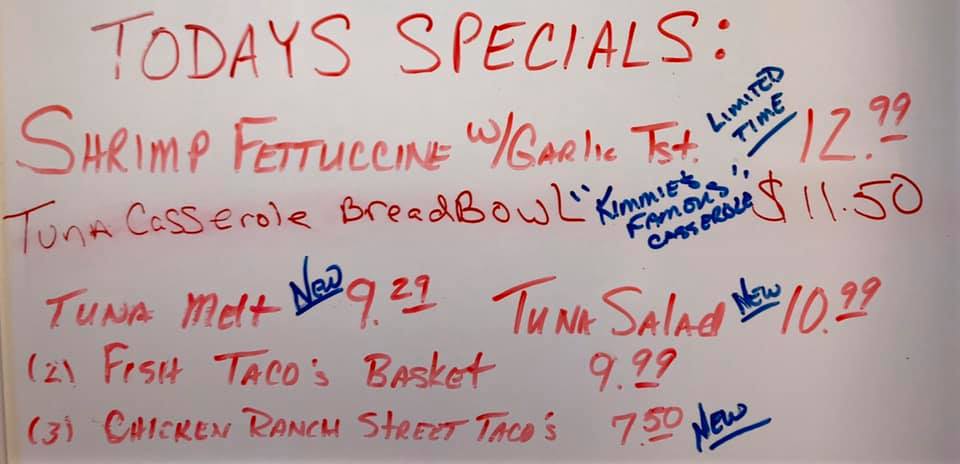 TODAYS SPECIALS:
SHRIMP FETTUCCINE W/GARLIC TST. LIMITED TIME 12.99
TUNA CASSEROLE BREADBOWL "KIMMIE'S FAMOUS CASSEROLE" $11.50
TUNA MELT NEW 9.29 TUNA SALAD NEW 10.99
(2) FISH TACO'S BASKET 9.99
(3) CHICKEN RANCH STREET TACO'S 7.50 NEW